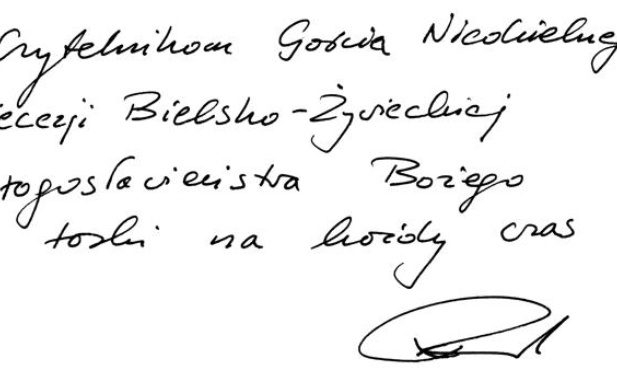 Czytelnikom Gościa Niedzielneg
iecezji Bielsko-Żywieckiej
łogosławieństwa Bożego
łaski na każdy czas